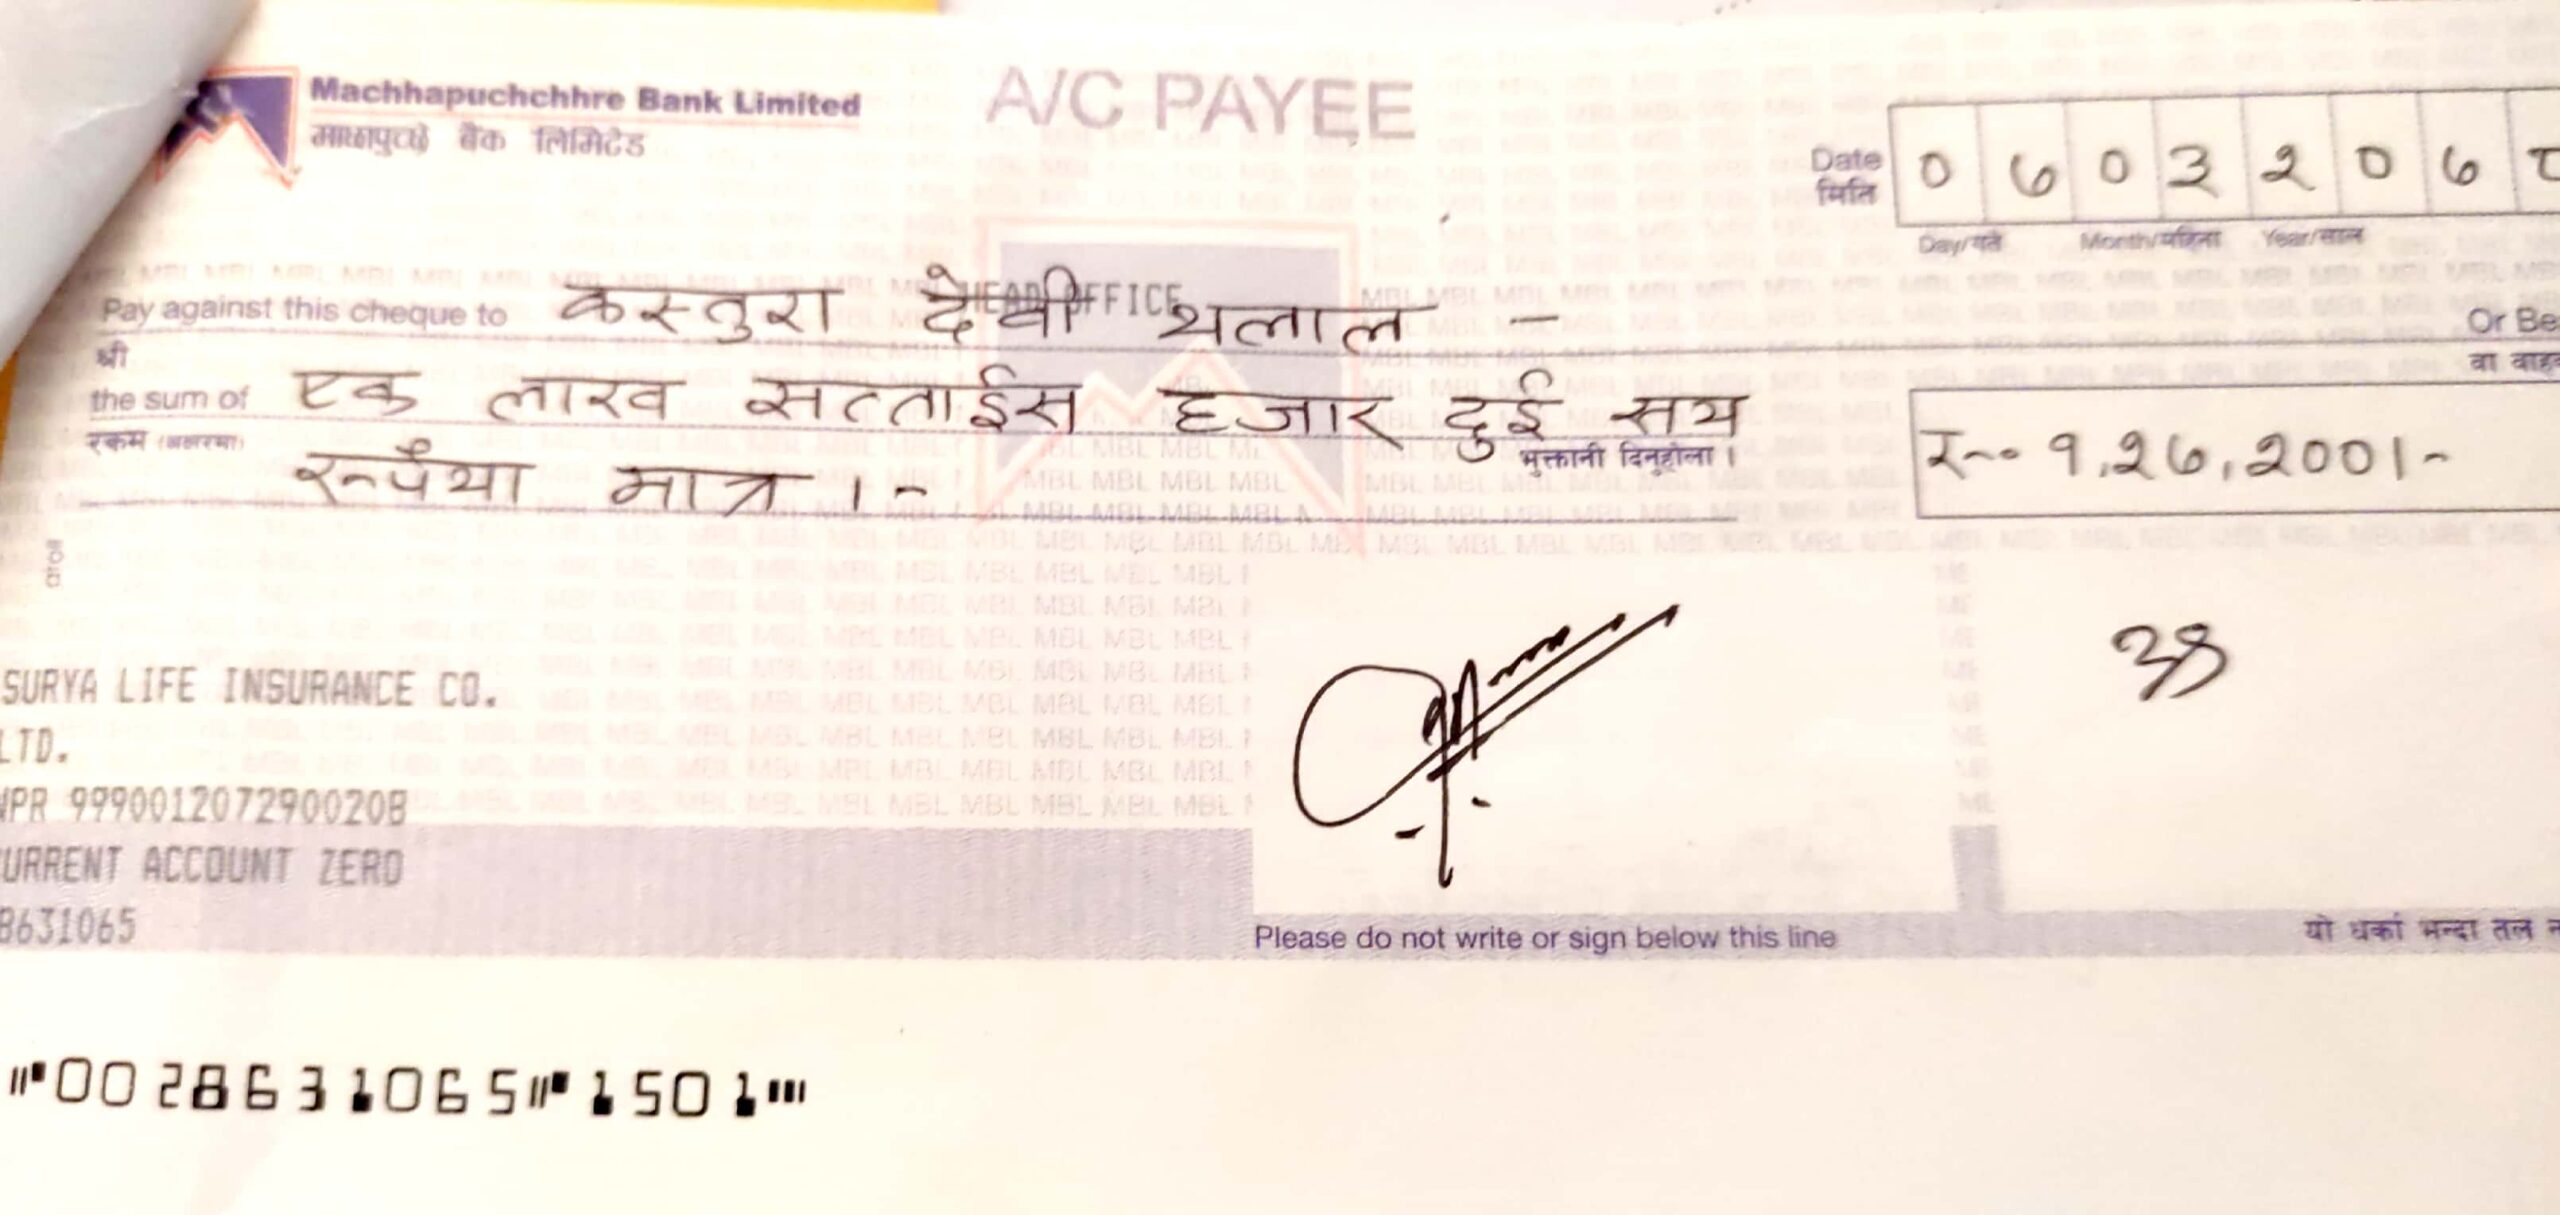 Machhapuchchhre Bank Limited
माछापुच्छ्रे बैंक लिमिटेड
A/C PAYEE
Date ० ७ ० ३ २ ० ७
मिति
Day/गते Month/महिना Year/साल
HEAD OFFICE
Pay against this cheque to कस्तुरा देवी थलाल -
Or Be
श्री
वा वाह
the sum of एक लाख सत्ताईस हजार दुई सय
रकम (अक्षरमा)
भुक्तानी दिनुहोला ।
रु-. १,२७,२००।-
रूपैया मात्र ।-
SURYA LIFE INSURANCE CO.
LTD.
NPR 9990012072900208
CURRENT ACCOUNT ZERO
8631065
Please do not write or sign below this line
यो धर्का भन्दा तल
00286310651501